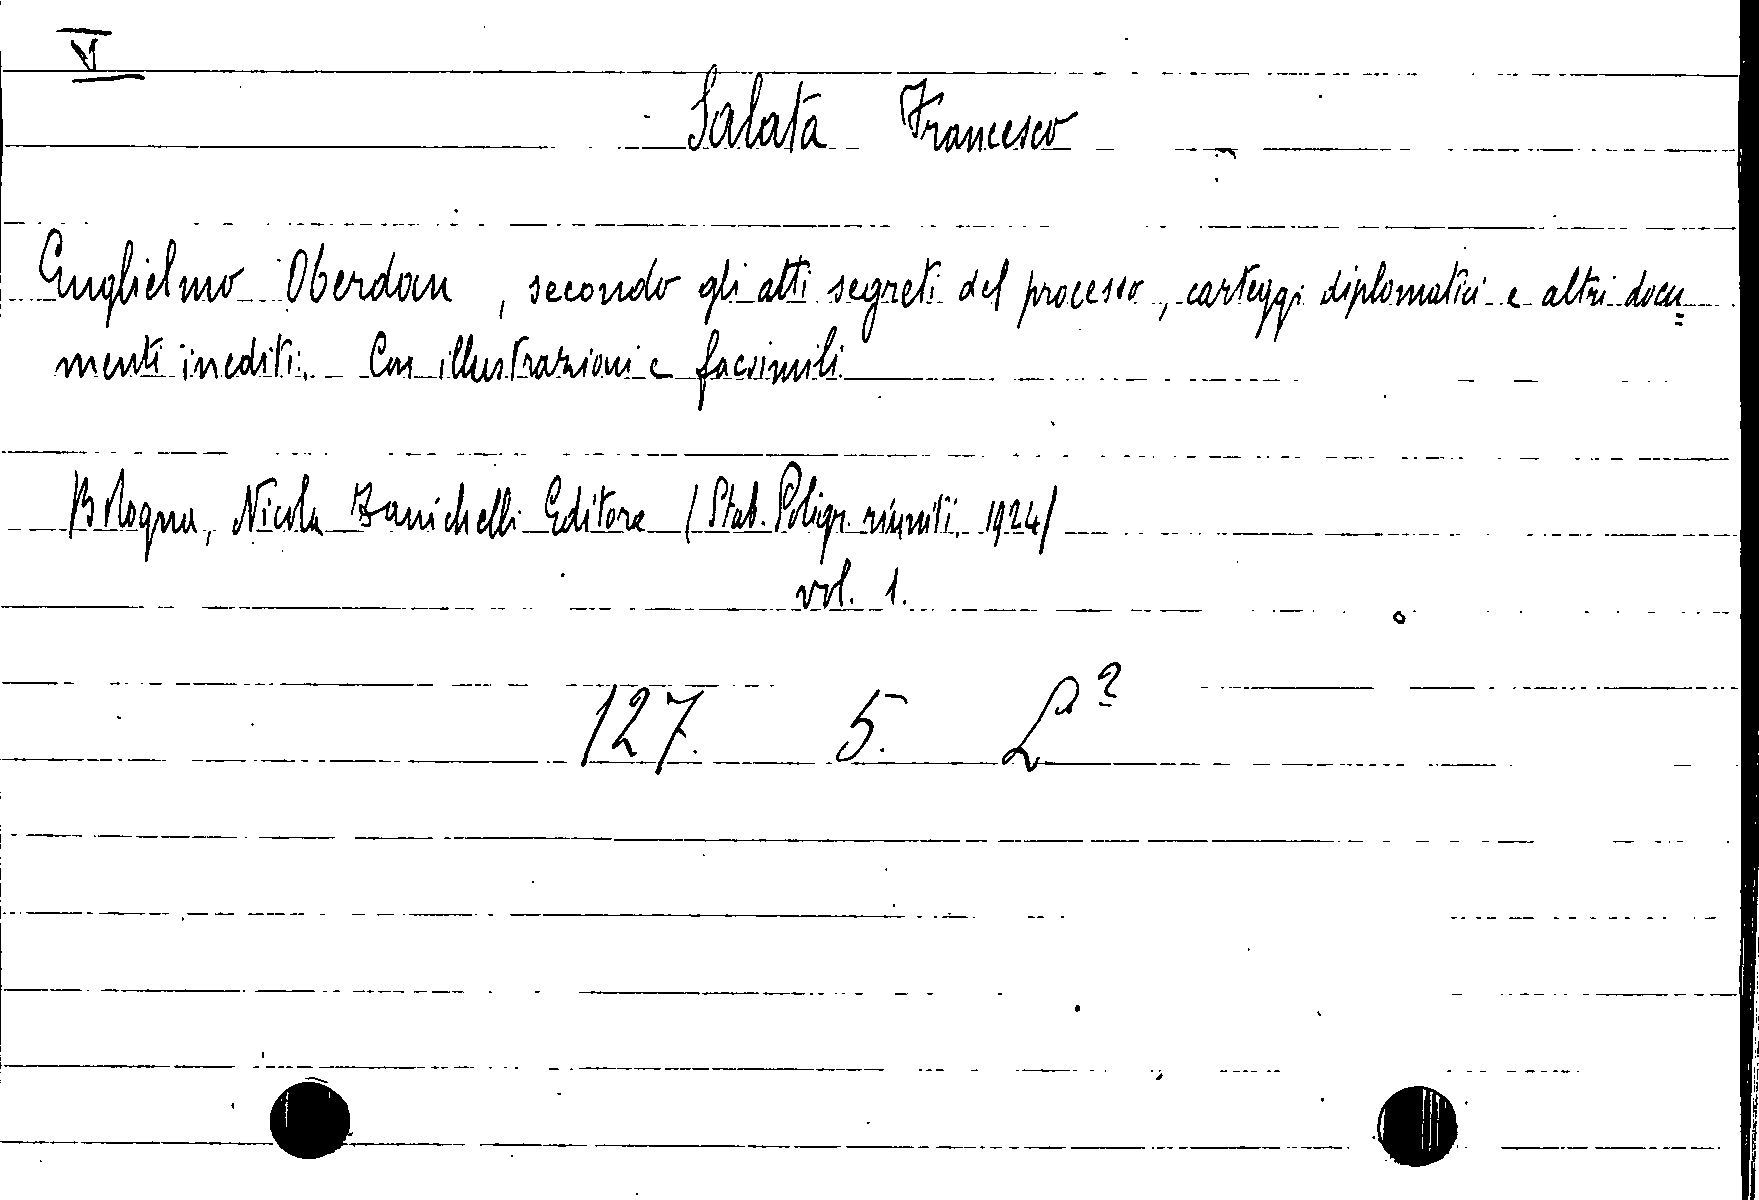 VI
Salata Francesco
Guglielmo Oberdan, secondo gli atti segreti del processo, carteggi diplomatici e altri docu=
menti inediti. Con illustrazioni e facsimili.
Bologna, Nicola Zanichelli Editore (Stab. Poligr. riuniti. 1924)
vol. 1.
127. 5. L²